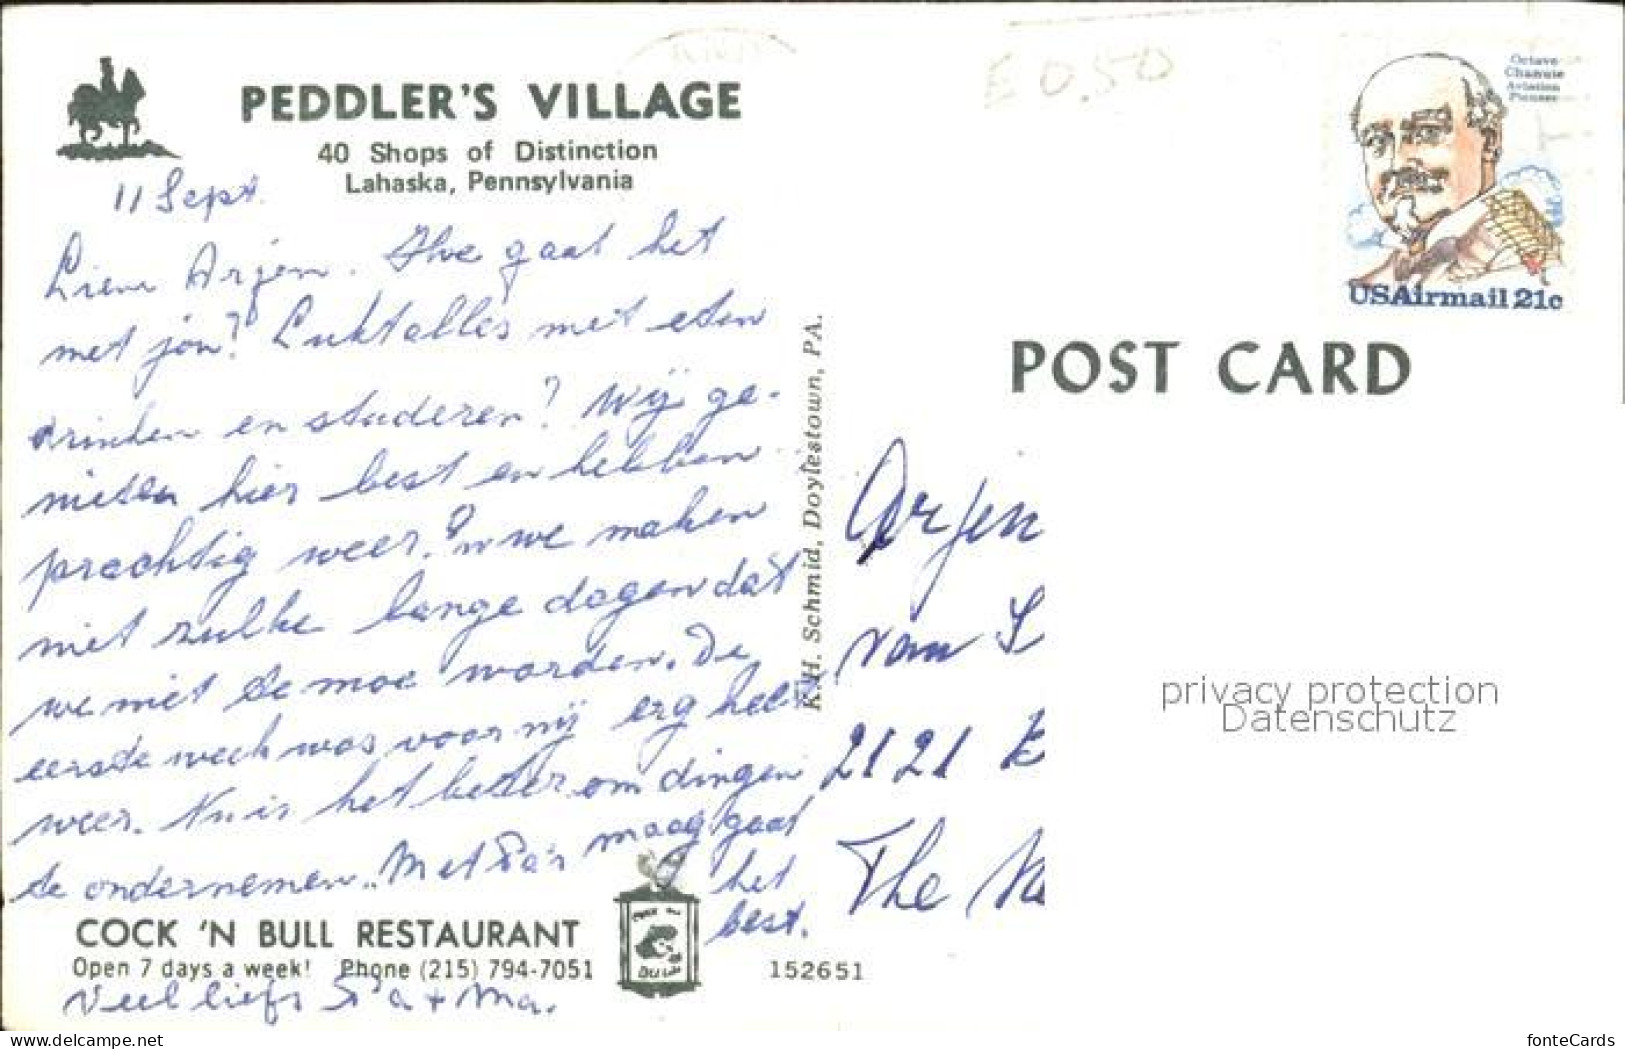 PEDDLER'S VILLAGE
40 Shops of Distinction
Lahaska, Pennsylvania
11 Sept.
Lieve Arjen. Hoe gaat het
met jou? Lukt alles met eten
drinken en studeren? Wij ge-
nieten hier best en hebben
prachtig weer. En we maken
niet zulke lange dagen dat
we niet te moe worden. De
eerste week was voor mij erg heet
weer. Nu is het beter om dingen
te ondernemen. Met Pa's maag gaat
het
best.
COCK 'N BULL RESTAURANT
Open 7 days a week! Phone (215) 794-7051
Veel liefs Pa + Ma.
152651
K.H. Schmid, Doylestown, PA.
E 0.50
Octave
Chanute
Aviation
Pioneer
USAirmail 21c
POST CARD
Arjen
van
2121
The
privacy protection
Datenschutz
www.delcampe.net
fonteCards